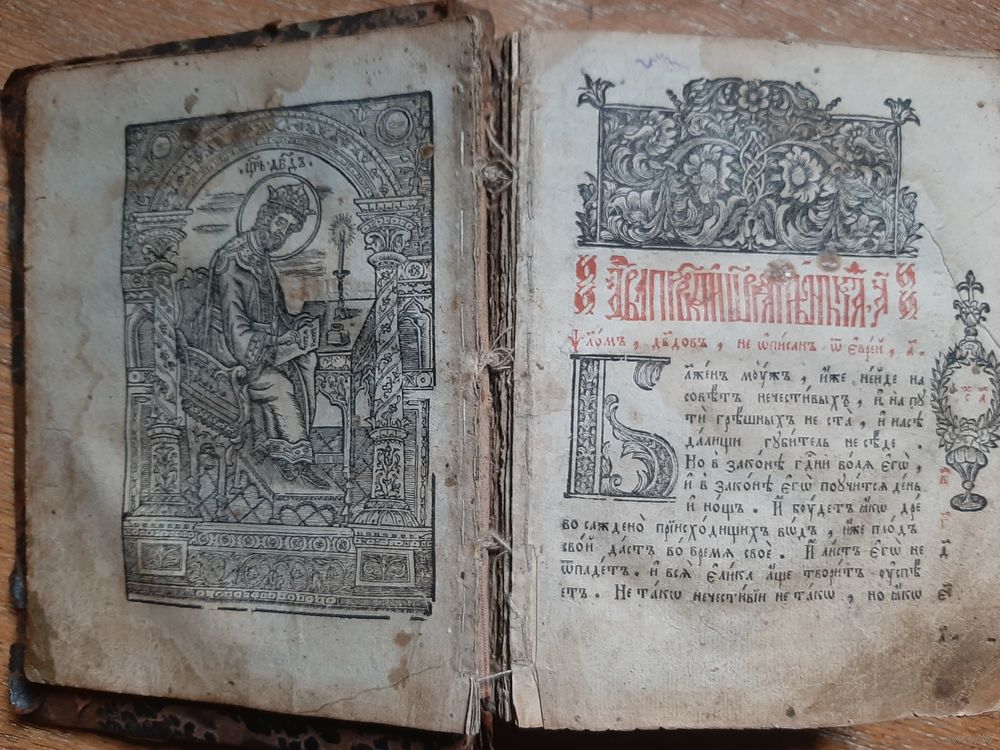 цр҃ь дв҃дъ
ѱало́мъ, дв҃довъ, не ѡ҆писанъ ѿ є҆врє́й, а҃.
Блаже́нъ мꙋ́жъ, и҆́же не́йде на
совѣ́тъ нечести́выхъ, и҆ на пꙋ
тѝ грѣ́шныхъ не ста̀, и҆ насѣ
да́лищи гꙋби́тель не сѣ́де.
Но в зако́нѣ гд҃ни во́лѧ є҆гѡ̀,
и҆ в зако́нѣ є҆гѡ̀ поꙋчи́тсѧ де́нь
и҆ но́щь. И҆ бꙋ́детъ ꙗ҆́кѡ дре́
во сажде́но при и҆схо́дищихъ во́дъ, и҆́же пло́дъ
сво́й да́стъ во вре́мѧ своѐ. И҆ ли́стъ є҆гѡ̀ не
ѿпаде́тъ. и҆ всѧ̀ є҆ли́ка а҆́ще твори́тъ ᲂу҆спѣ́
етъ. Не та́кѡ нечести́вїи не та́кѡ, но ꙗ҆́кѡ